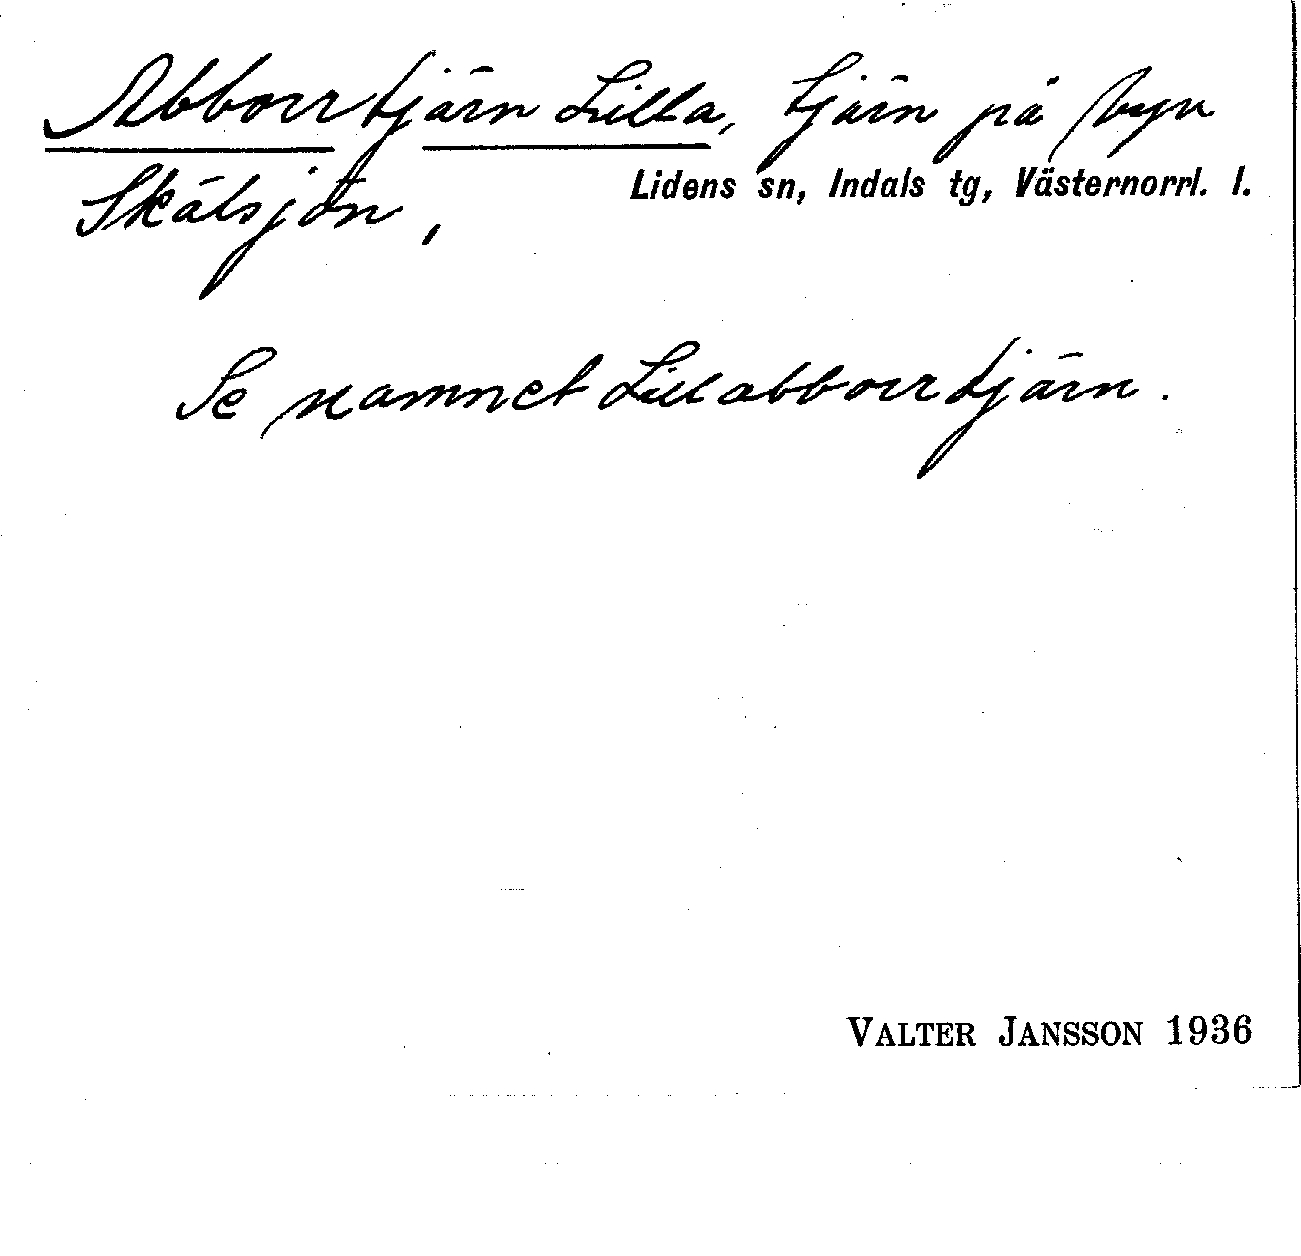 Abborrtjärn Lilla, tjärn på byn
Skälsjön,
Lidens sn, Indals tg, Västernorrl. l.
Se namnet Lillabborrtjärn.
VALTER JANSSON 1936